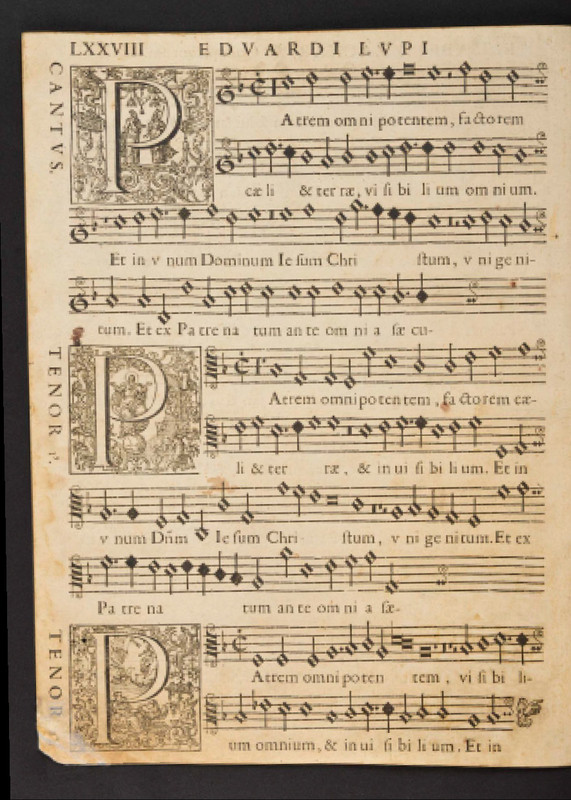 LXXVIII EDVARDI LVPI
CANTVS.
P
Atrem om ni po tentem, fa ctorem
cæ li & ter ræ, vi si bi li um om ni um.
Et in v num Dominum Ie sum Chri stum, v ni ge ni-
tum. Et ex Pa tre na tum an te om ni a sæ cu-
TENOR 1º.
P
Atrem omnipotentem, fa ctorem cæ-
li & ter ræ, & in ui si bi li um. Et in
v num Dñm Ie sum Chri stum, v ni ge nitum. Et ex
Pa tre na tum an te om ni a sæ-
TENOR
P
Atrem omni poten tem, vi si bi li-
um omnium, & in ui si bi li um. Et in